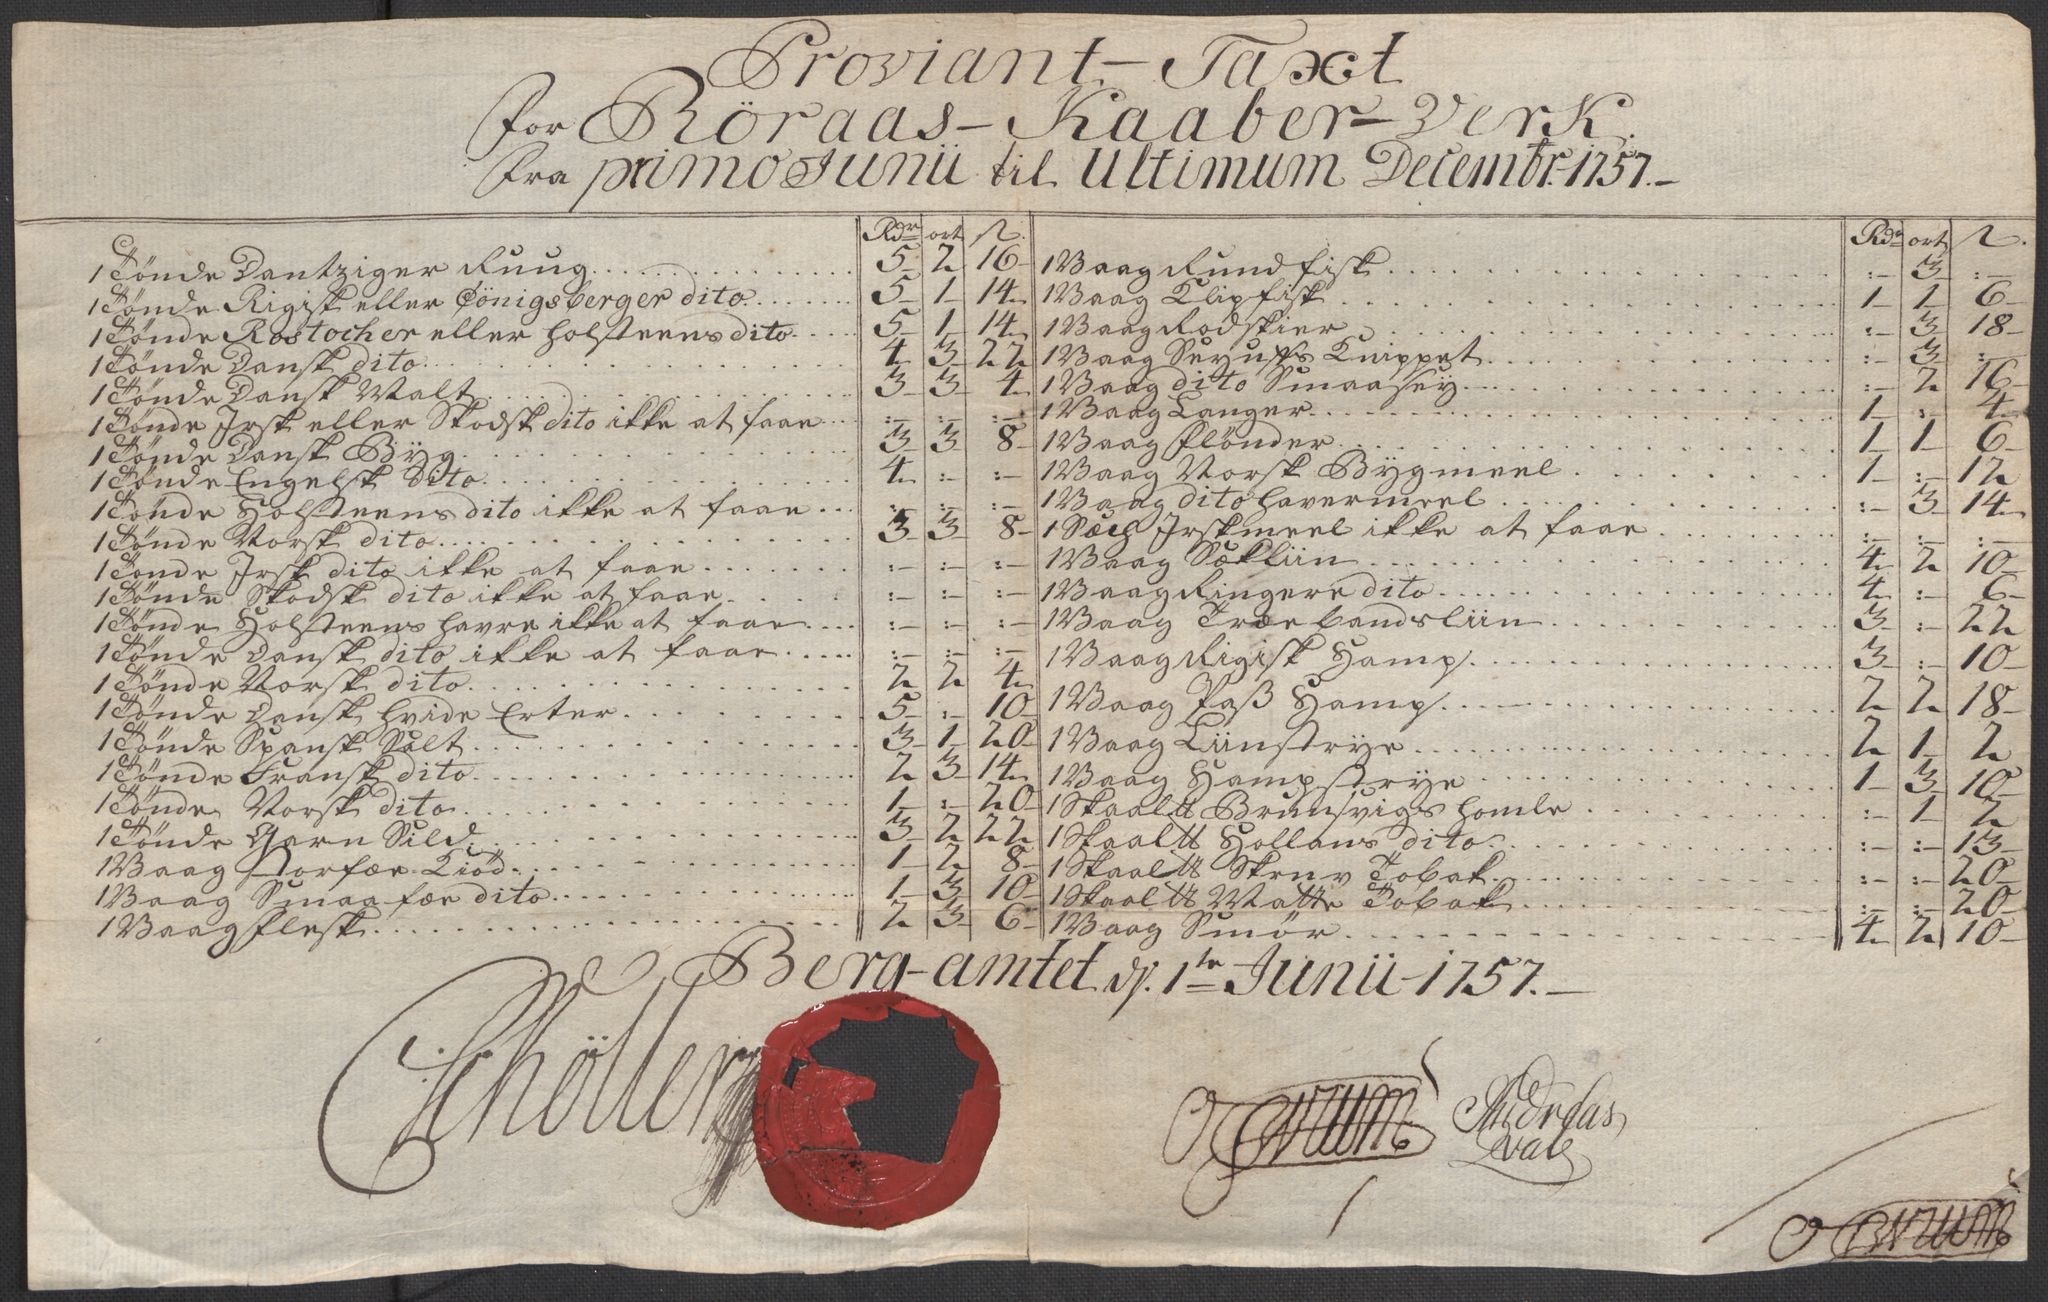 Proviant-Taxt
for Röraas-Kaaber-Verk.
fra primo Junii til Ultimum Decembr: 1757.
Rdr ort s.
1 Tönde Dantziger Ruug 5 2 16
1 Tönde Rigisk eller Cönigsberger dito 5 1 14
1 Tönde Rostocher eller Holsteens dito 5 1 14
1 Tönde Dansk dito 4 3 22
1 Tönde Dansk Malt 3 3 4
1 Tönde Irsk eller Skodsk dito ikke at faae :- :- :-
1 Tönde Dansk Byg 3 3 8
1 Tönde Engelsk dito 4 :- :-
1 Tönde Holsteens dito ikke at faae :- :- :-
1 Tönde Norsk dito 3 3 8
1 Tönde Irsk dito ikke at faae :- :- :-
1 Tönde Skodsk dito ikke at faae :- :- :-
1 Tönde Holsteens havre ikke at faae :- :- :-
1 Tönde Dansk dito ikke at faae :- :- :-
1 Tönde Norsk dito 2 2 4
1 Tönde Dansk hvide Erter 5 :- 10
1 Tönde Spansk Salt 3 1 20
1 Tönde Fransk dito 2 3 14
1 Tönde Norsk dito 1 :- 20
1 Tönde Garn Sild 3 2 22
1 Vaag Storfæe Kiöd 1 2 8
1 Vaag Smaafæe dito 1 3 10
1 Vaag Flesk 2 3 6
Rdr ort s.
1 Vaag Rundfisk :- 3 :-
1 Vaag Klipfisk 1 1 6
1 Vaag Rodskier :- 3 18
1 Vaag Knippet :- 3 :-
1 Vaag dito Smaasey :- 2 16
1 Vaag Langer 1 :- 4
1 Vaag Flönder 1 1 6
1 Vaag Norsk Bygmeel 1 :- 12
1 Vaag dito Havermeel :- 3 14
1 Sæch Irskmeel ikke at faae :- :- :-
1 Vaag Sækliin 4 2 10
1 Vaag Ringere dito 4 :- 6
1 Vaag Træebandsliin 3 :- 22
1 Vaag Rigisk Hamp 3 :- 10
1 Vaag Pass Hamp 2 2 18
1 Vaag Liinstrye 2 1 2
1 Vaag Hampstrye 1 3 10
1 Skaal℔ Brunsvigs homle :- 1 2
1 Skaal℔ Hollans dito :- :- 13
1 Skaal℔ Skruv Tobak :- :- 20
1 Skaal℔ Matte Tobak :- :- 20
1 Vaag Smör 4 2 10
Berg-amtet d. 1te Junii 1757.
Schöller
Andreas